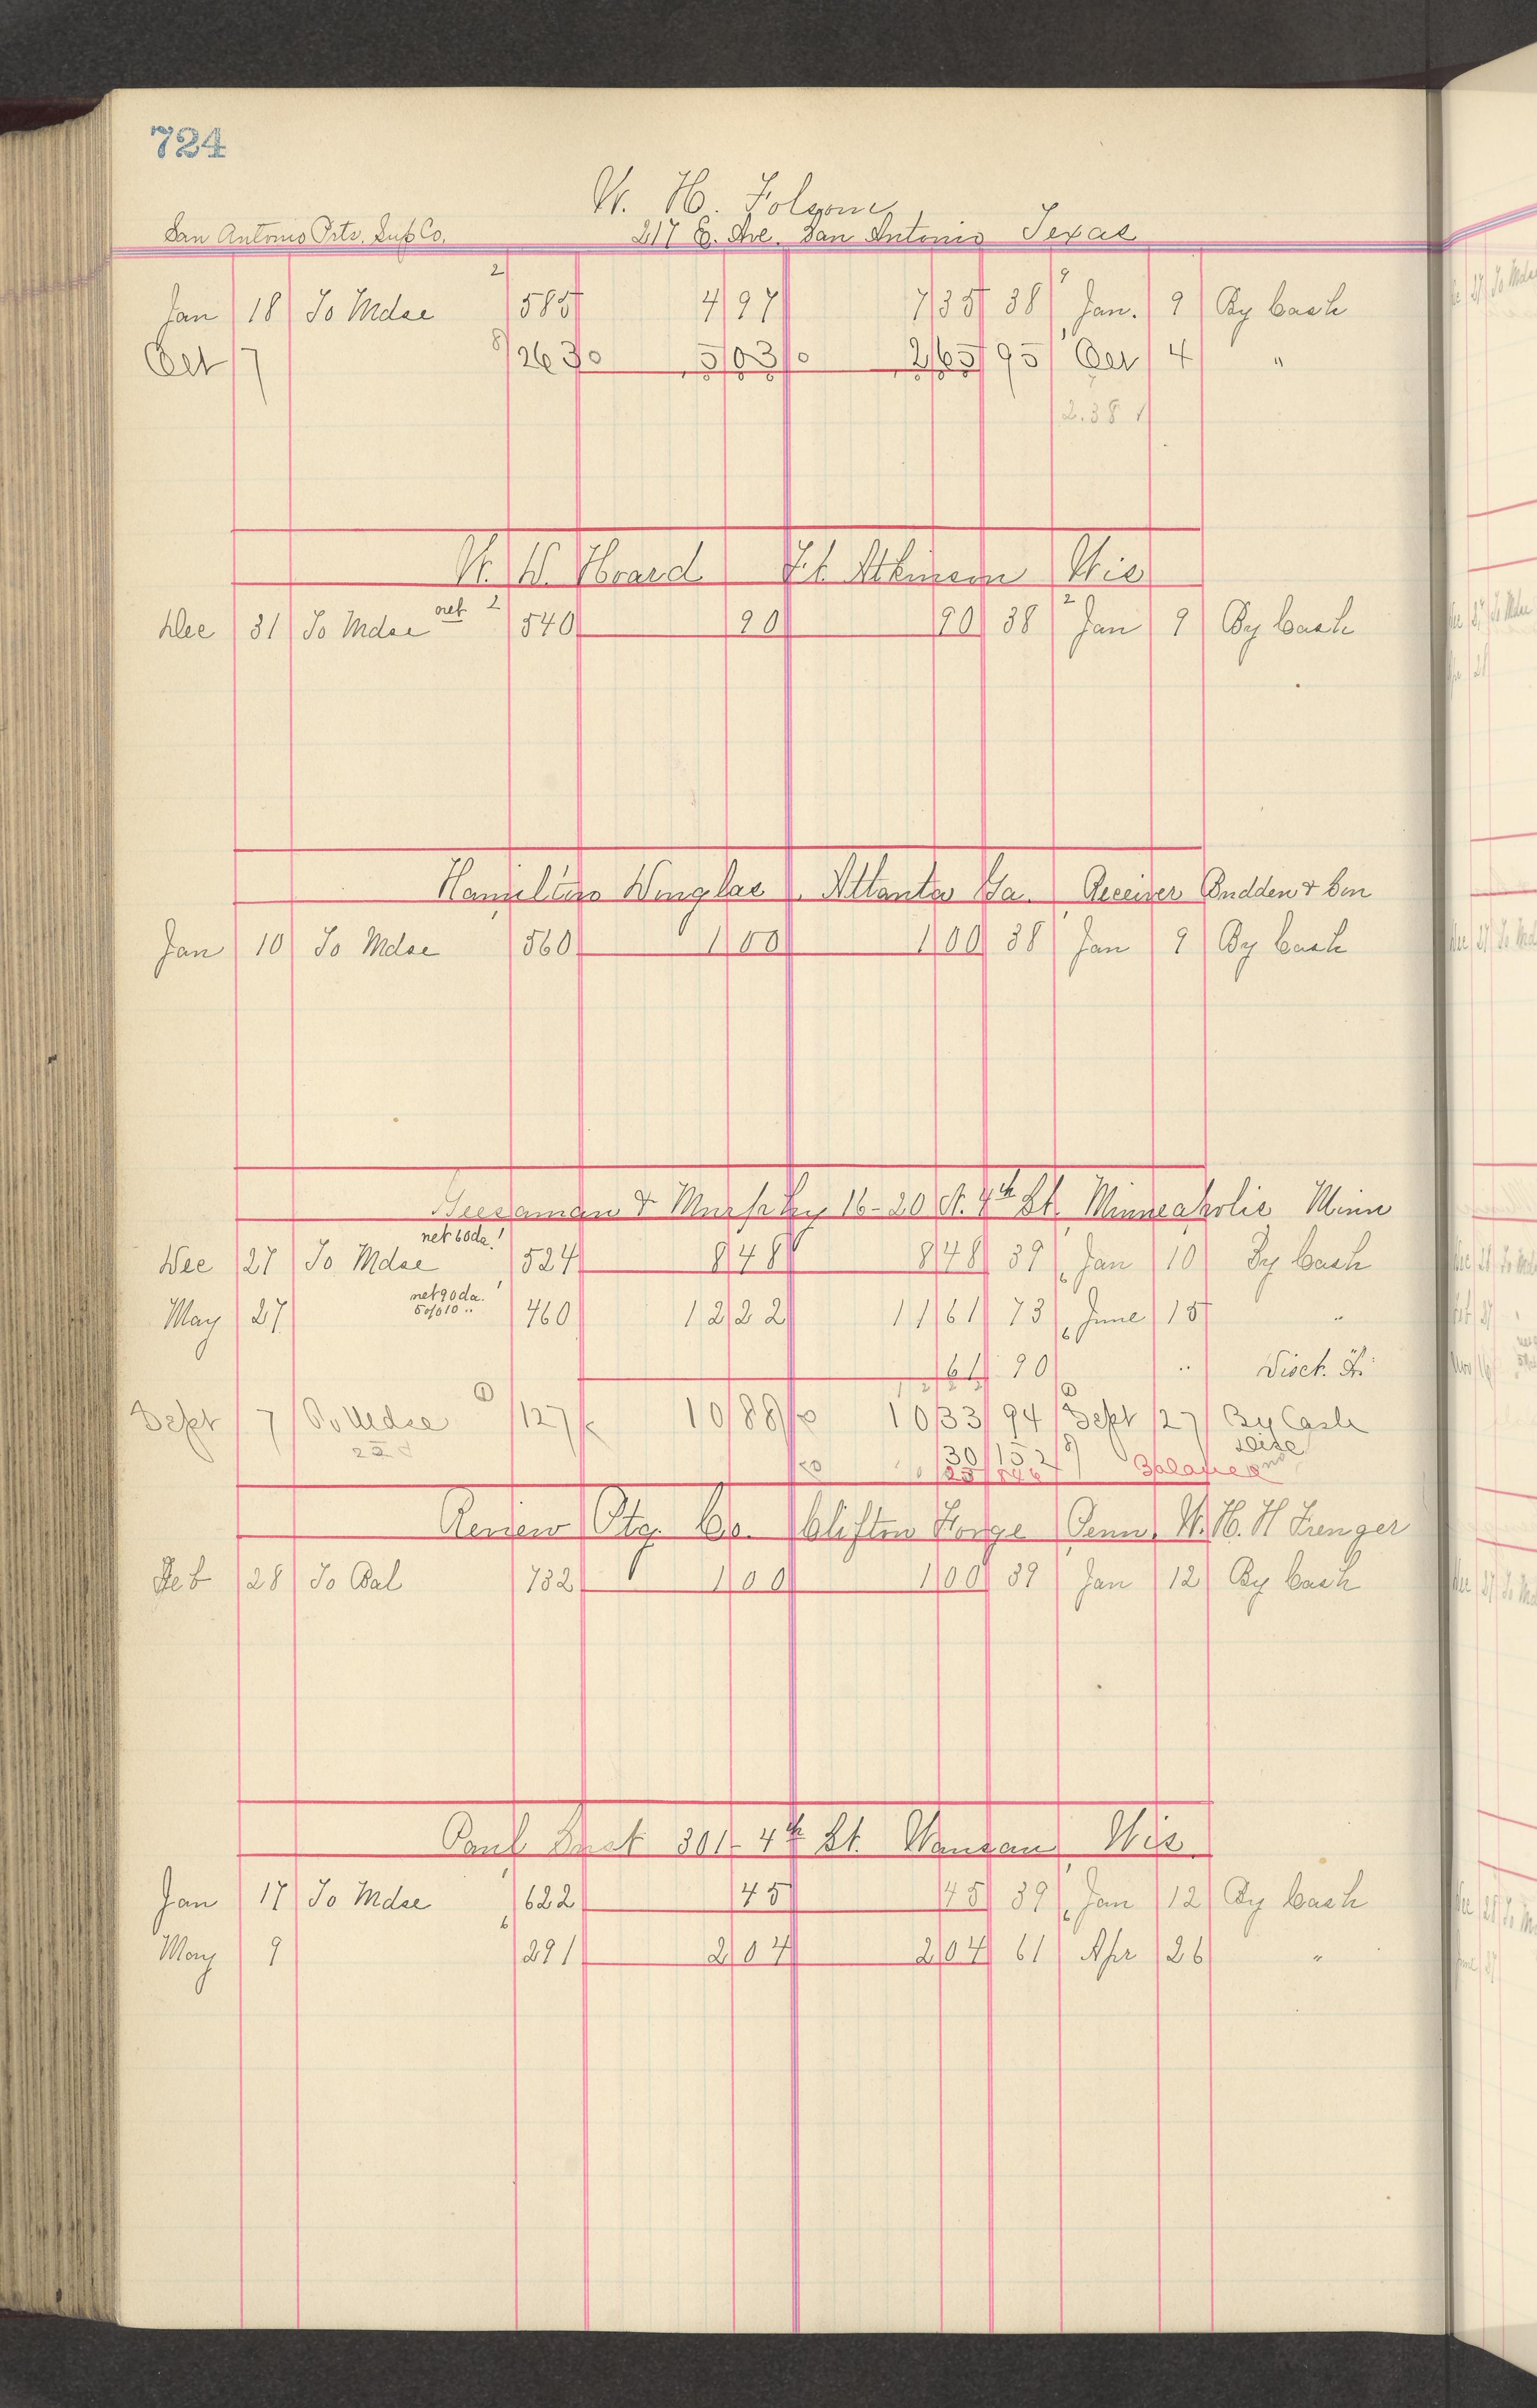 724
W. H. Folsom
San Antonio Prtr. Sup Co. 217 E. Ave. San Antonio Texas
Jan 18 To Mdse 2 585 4 97 7 35 38 9 Jan. 9 By Cash
Oct 7 8 263 5 03 2 65 95 Oct 4 "
2.38
W. W. Hoard Ft. Atkinson Wis
Dec 31 To Mdse net 2 540 90 90 38 2 Jan 9 By Cash
Hamilton Atlanta Ga. Receiver
Jan 10 To Mdse 560 1 00 1 00 38 Jan 9 By Cash
& Murphy 16-20 N. 4th St. Minneapolis Minn
Dec 27 To Mdse net 60 da. 524 8 48 8 48 39 Jan 10 By Cash
May 27 net 90 da. 5% 10 .. 460 12 22 11 61 73 June 15 "
61 90 .. Disct. Fr.
Sept 7 To Mdse 1 127 10 88 10 33 94 1 Sept 27 By Cash
30 152 Disc
25 Balance
Review Ptg. Co. Clifton Forge Penn. W. H. H
Feb 28 To Bal 732 1 00 1 00 39 Jan 12 By Cash
Paul 301 - 4th St. Wausau Wis.
Jan 17 To Mdse 622 45 45 39 Jan 12 By Cash
May 9 6 291 2 04 2 04 61 Apr 26 "